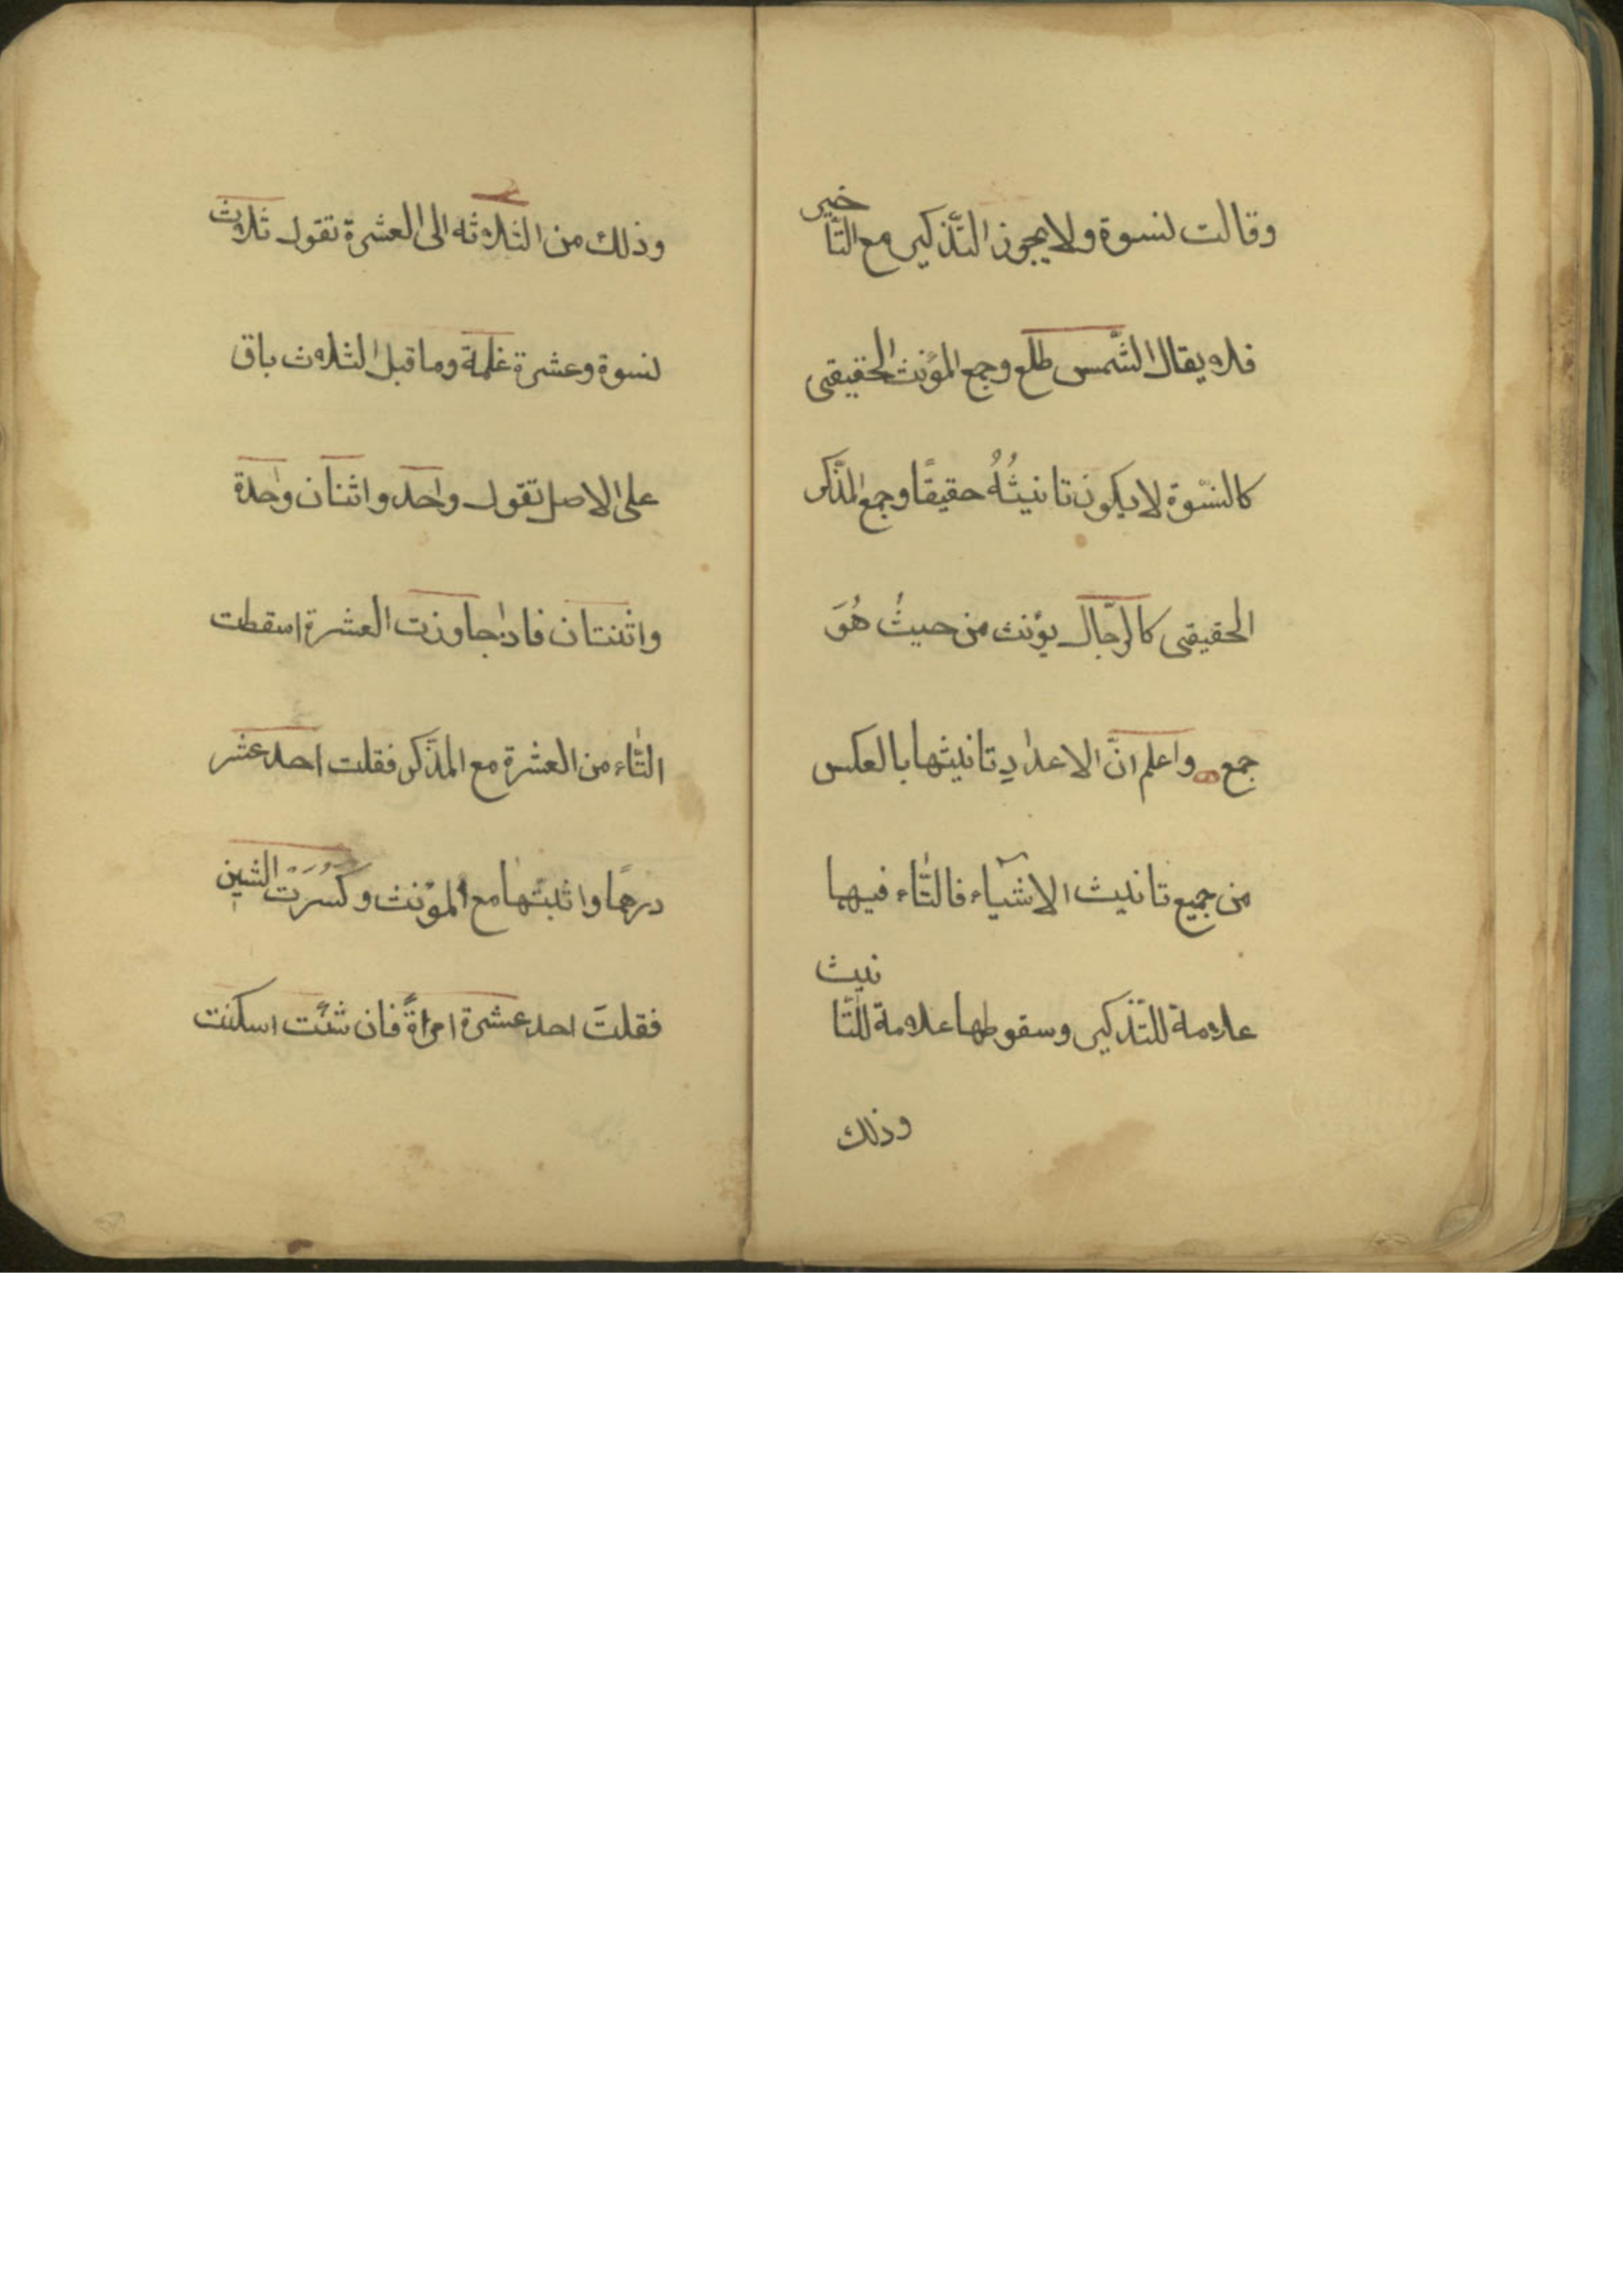 وقالت نسوة ولا يجوز التّذكير مع التّاخير
فلا يقال الشّمس طلع وجمع المؤنث الحقيقى
كالنسْوة لا يكون تانيثُهُ حقيقًا وجمع المذّكر
الحقيقى كالرّجال يؤنث من حيثُ هُوَ
جمع واعلم انّ الاعدادِ تانيثها بالعكس
من جميع تانيث الاشيآء فالتّاء فيها
علامة للتّذكير وسقوطها علامة للتّانيث
وذلك
وذلك من الثلاثه الى العشرة تقول ثلاث
نسوة وعشرة غلمة وما قبل الثلاث باق
على الاصل تقول واحد واثنان واحدة
واثنتان فاذا جاوزت العشرة اسقطت
التّاء من العشرة مع المذّكر فقلت احد عشر
درهمًا واثبتّها مع المؤنث وكَسُرَتْ الشين
فقلتَ احد عشرة امراةً فان شئت اسكنت